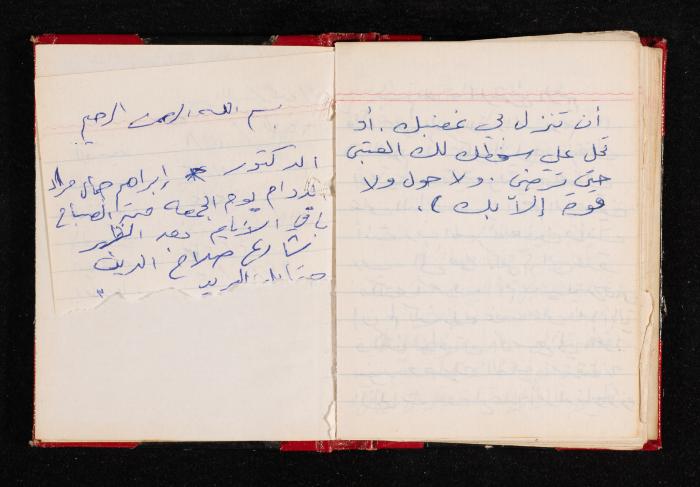 بسم الله الرحمن الرحيم
الدكتور إبراهيم جمال مراد
الدوام يوم الجمعه فترة الصباح
باقي الأيام بعد الظهر
شارع صلاح الدين
مقابل البريد
أن تنزل بي غضبك. أو
تحل علي سخطك لك العتبى
حتى ترضى. ولا حول ولا
قوة إلا بك ).